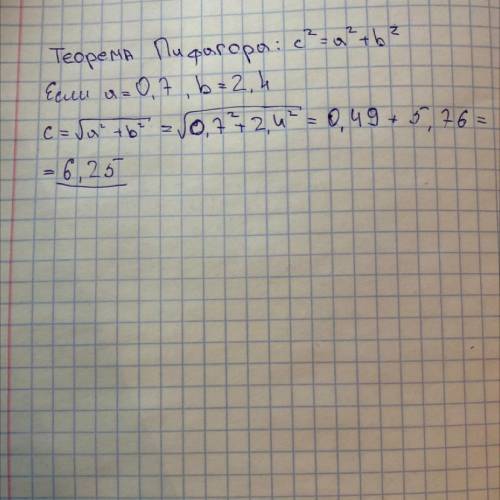 Теорема Пифагора: c² = a² + b²
Если a = 0,7 , b = 2,4
c = √a² + b² = √0,7² + 2,4² = 0,49 + 5,76 =
= 6,25